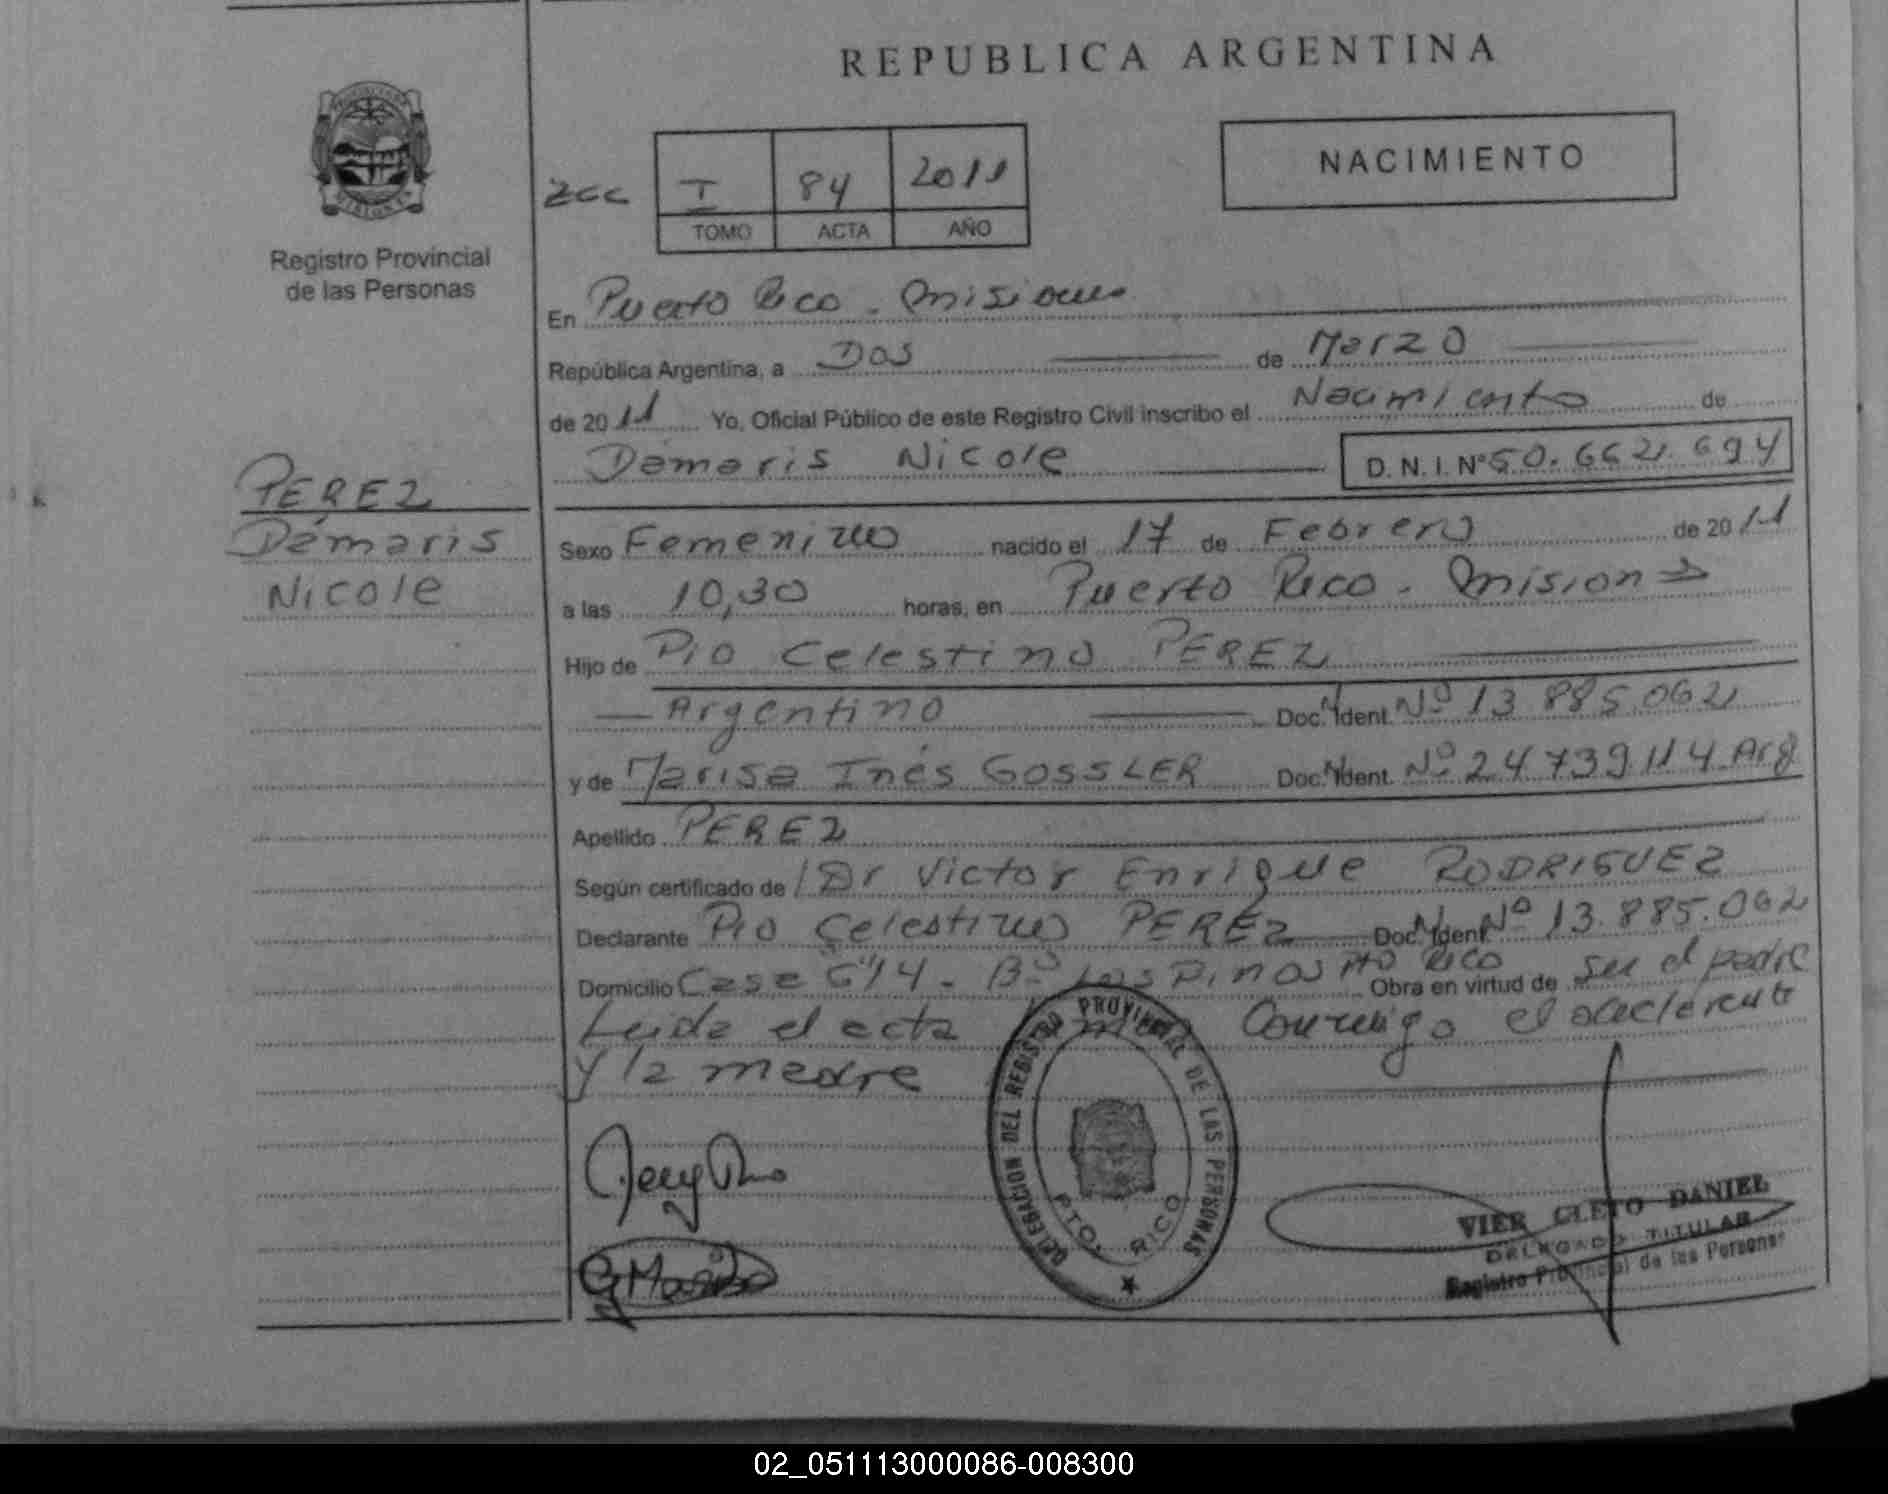 REPUBLICA ARGENTINA
NACIMIENTO
I 84 2011
TOMO ACTA AÑO
Registro Provincial
de las Personas
En Puerto Rico - Misiones
República Argentina, a Dos de Marzo
de 2011 Yo, Oficial Público de este Registro Civil inscribo el Nacimiento de
Dámaris Nicole D. N. I. Nº 50.662.694
PEREZ
Dámaris
Nicole
Sexo Femenino nacido el 17 de Febrero de 2011
a las 10,30 horas, en Puerto Rico - Misiones
Hijo de Pio Celestino PEREZ
Argentino Doc. Ident. Nº 13 885.062
y de Marisa Inés GOSSLER Doc. Ident. Nº 24 739 114 Arg
Apellido PEREZ
Según certificado de Dr Victor Enrique RODRIGUEZ
Declarante Pio Celestino PEREZ Doc. Ident. Nº 13.885.062
Domicilio Casa Bº Los Pinos Pto Rico Obra en virtud de ser el padre
Leida el acta conmigo el declarante
y la madre
DELEGACION DEL REGISTRO PROVINCIAL DE LAS PERSONAS
PTO. RICO
VIER CLETO DANIEL
DELEGADO TITULAR
Registro Provincial de las Personas
02_051113000086-008300